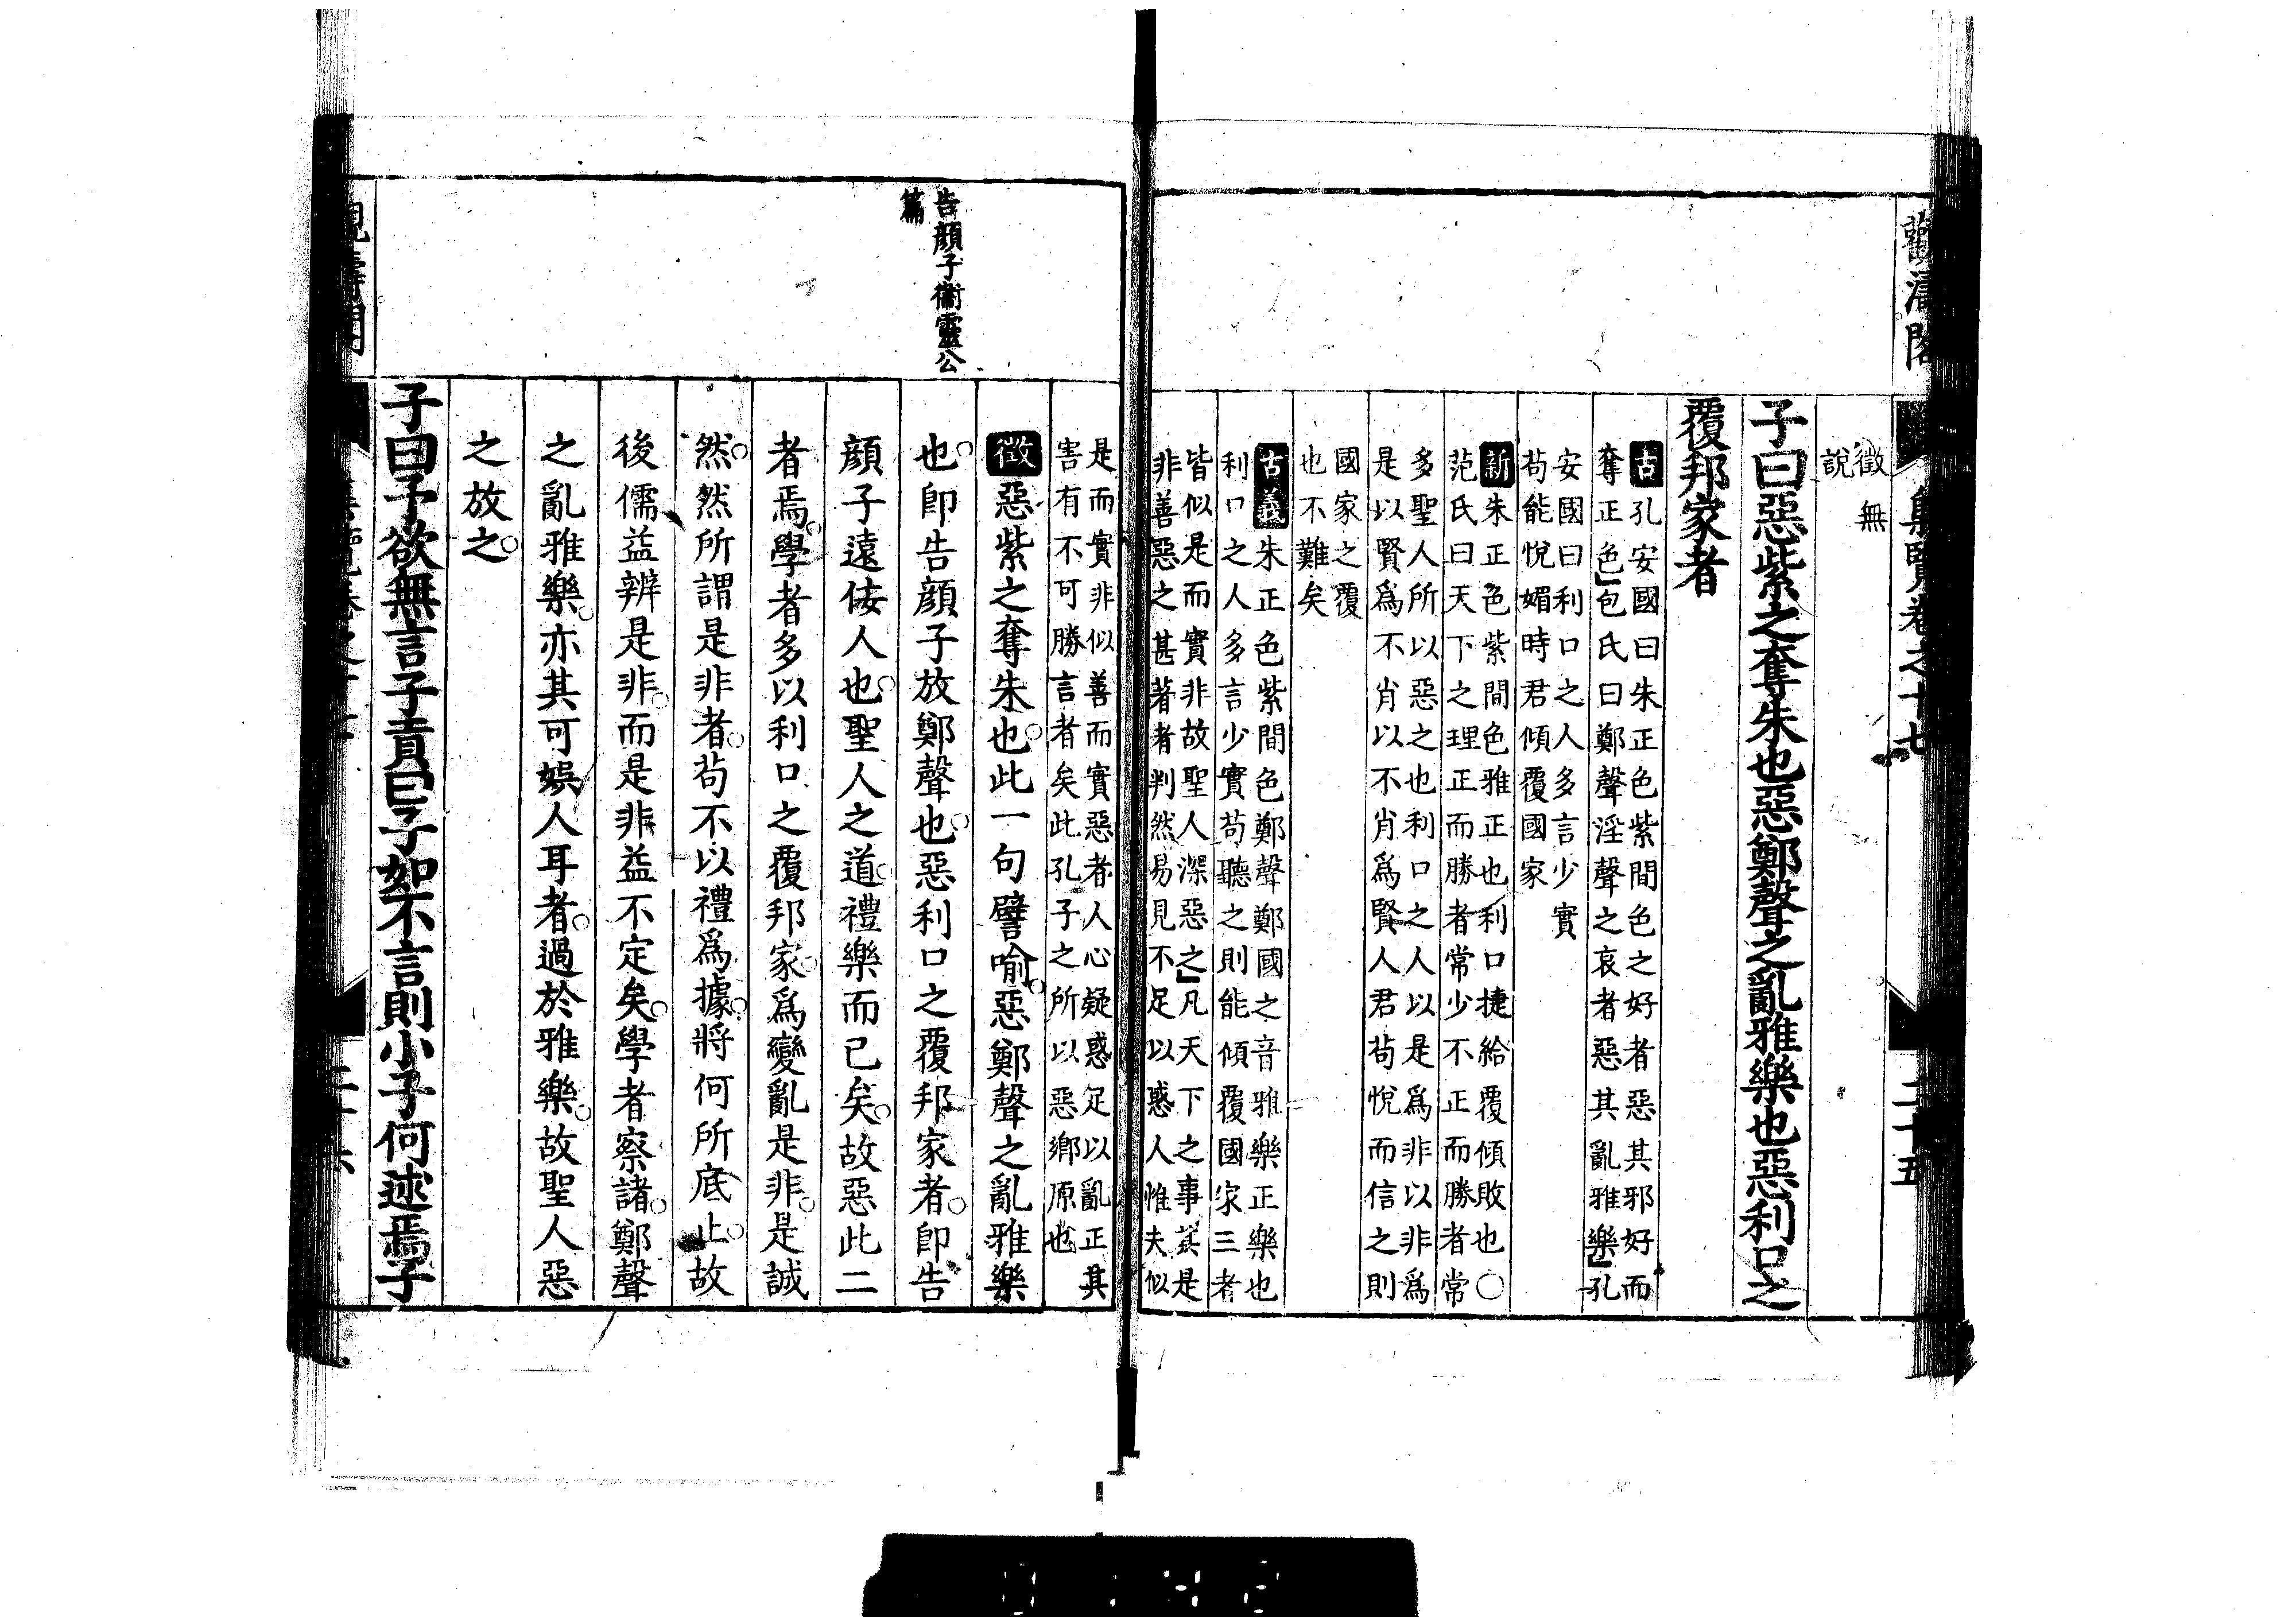 觀濤閣
集覽卷之十七
二十五
徵無
說
子曰惡紫之奪朱也惡鄭聲之亂雅樂也惡利口之
覆邦家者
古孔安國曰朱正色紫間色之好者惡其邪好而
奪正色包氏曰鄭聲淫聲之哀者惡其亂雅樂孔
安國曰利口之人多言少實
苟能悅媚時君傾覆國家
新朱正色紫間色雅正也利口捷給覆傾敗也○
范氏曰天下之理正而勝者常少不正而勝者常
多聖人所以惡之也利口之人以是爲非以非爲
是以賢爲不肖以不肖爲賢人君苟悅而信之則
國家之覆
也不難矣
古義朱正色紫間色鄭聲鄭國之音雅樂正樂也
利口之人多言少實苟聽之則能傾覆國家三者
皆似是而實非故聖人深惡之凡天下之事其是
非善惡之甚著者判然易見不足以惑人惟夫似
是而實非似善而實惡者人心疑惑足以亂正其
害有不可勝言者矣此孔子之所以惡鄉原也
徵惡紫之奪朱也此一句譬喻惡鄭聲之亂雅樂
告顏子衞靈公
篇
也卽告顏子放鄭聲也惡利口之覆邦家者卽告
顏子遠佞人也聖人之道禮樂而已矣故惡此二
者焉學者多以利口之覆邦家爲變亂是非是誠
然然所謂是非者苟不以禮爲據將何所底止故
後儒益辨是非而是非益不定矣學者察諸鄭聲
之亂雅樂亦其可娛人耳者過於雅樂故聖人惡
之放之
子曰予欲無言子貢曰子如不言則小子何述焉子